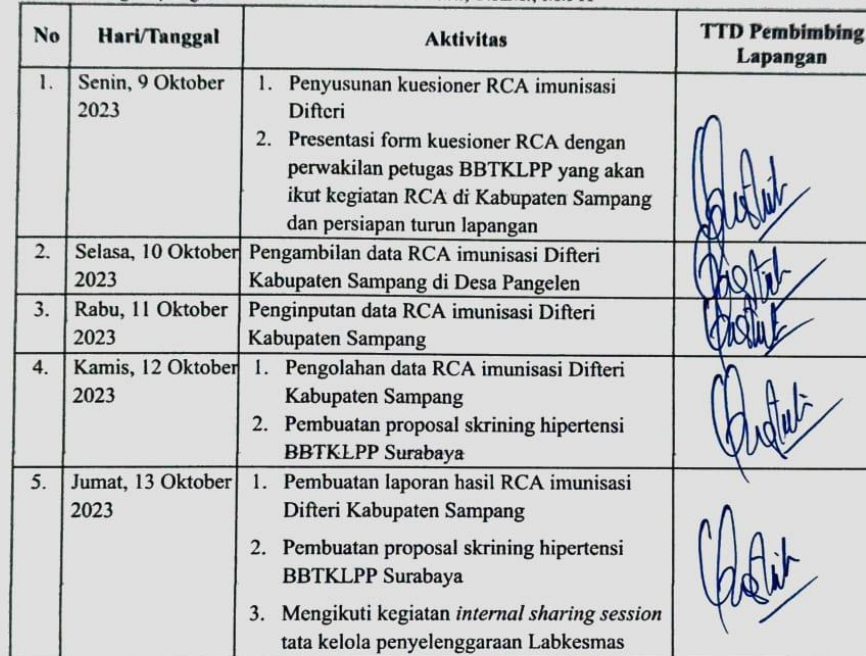 No Hari/Tanggal Aktivitas TTD Pembimbing
Lapangan
1. Senin, 9 Oktober 1. Penyusunan kuesioner RCA imunisasi
2023 Difteri
2. Presentasi form kuesioner RCA dengan
perwakilan petugas BBTKLPP yang akan
ikut kegiatan RCA di Kabupaten Sampang
dan persiapan turun lapangan
2. Selasa, 10 Oktober Pengambilan data RCA imunisasi Difteri
2023 Kabupaten Sampang di Desa Pangelen
3. Rabu, 11 Oktober Penginputan data RCA imunisasi Difteri
2023 Kabupaten Sampang
4. Kamis, 12 Oktober 1. Pengolahan data RCA imunisasi Difteri
2023 Kabupaten Sampang
2. Pembuatan proposal skrining hipertensi
BBTKLPP Surabaya
5. Jumat, 13 Oktober 1. Pembuatan laporan hasil RCA imunisasi
2023 Difteri Kabupaten Sampang
2. Pembuatan proposal skrining hipertensi
BBTKLPP Surabaya
3. Mengikuti kegiatan internal sharing session
tata kelola penyelenggaraan Labkesmas